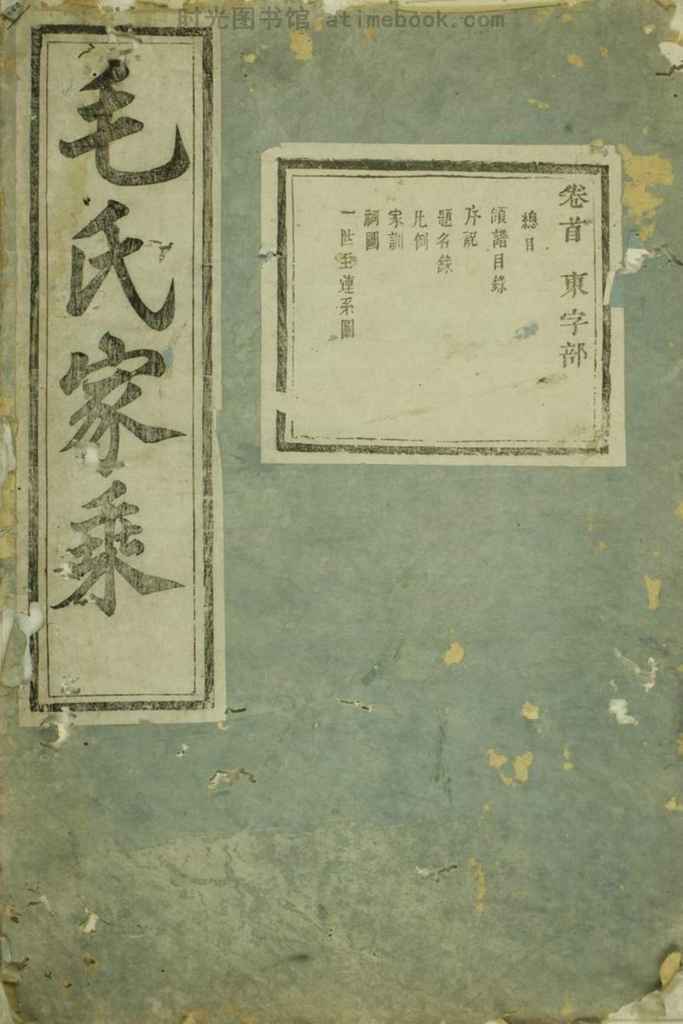 时光图书馆 atimebook.com
毛氏家乘
卷首 東字部
總目
領譜目錄
序說
題名錄
凡例
家訓
祠圖
一世至連系圖